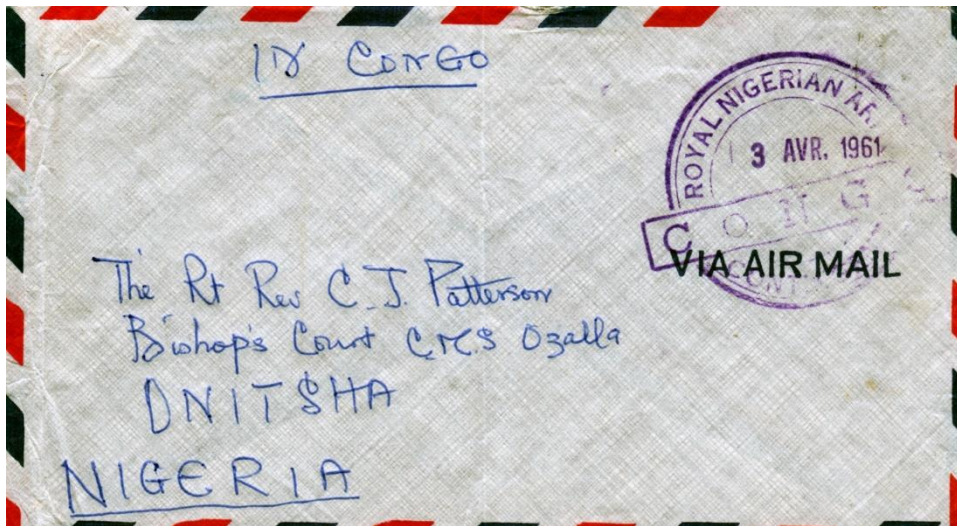 IN CONGO
ROYAL NIGERIAN
3 AVR. 1961
CONG
VIA AIR MAIL
The Rt Rev C. J. Patterson
Bishop's Court C.M.S Ozalla
ONITSHA
NIGERIA